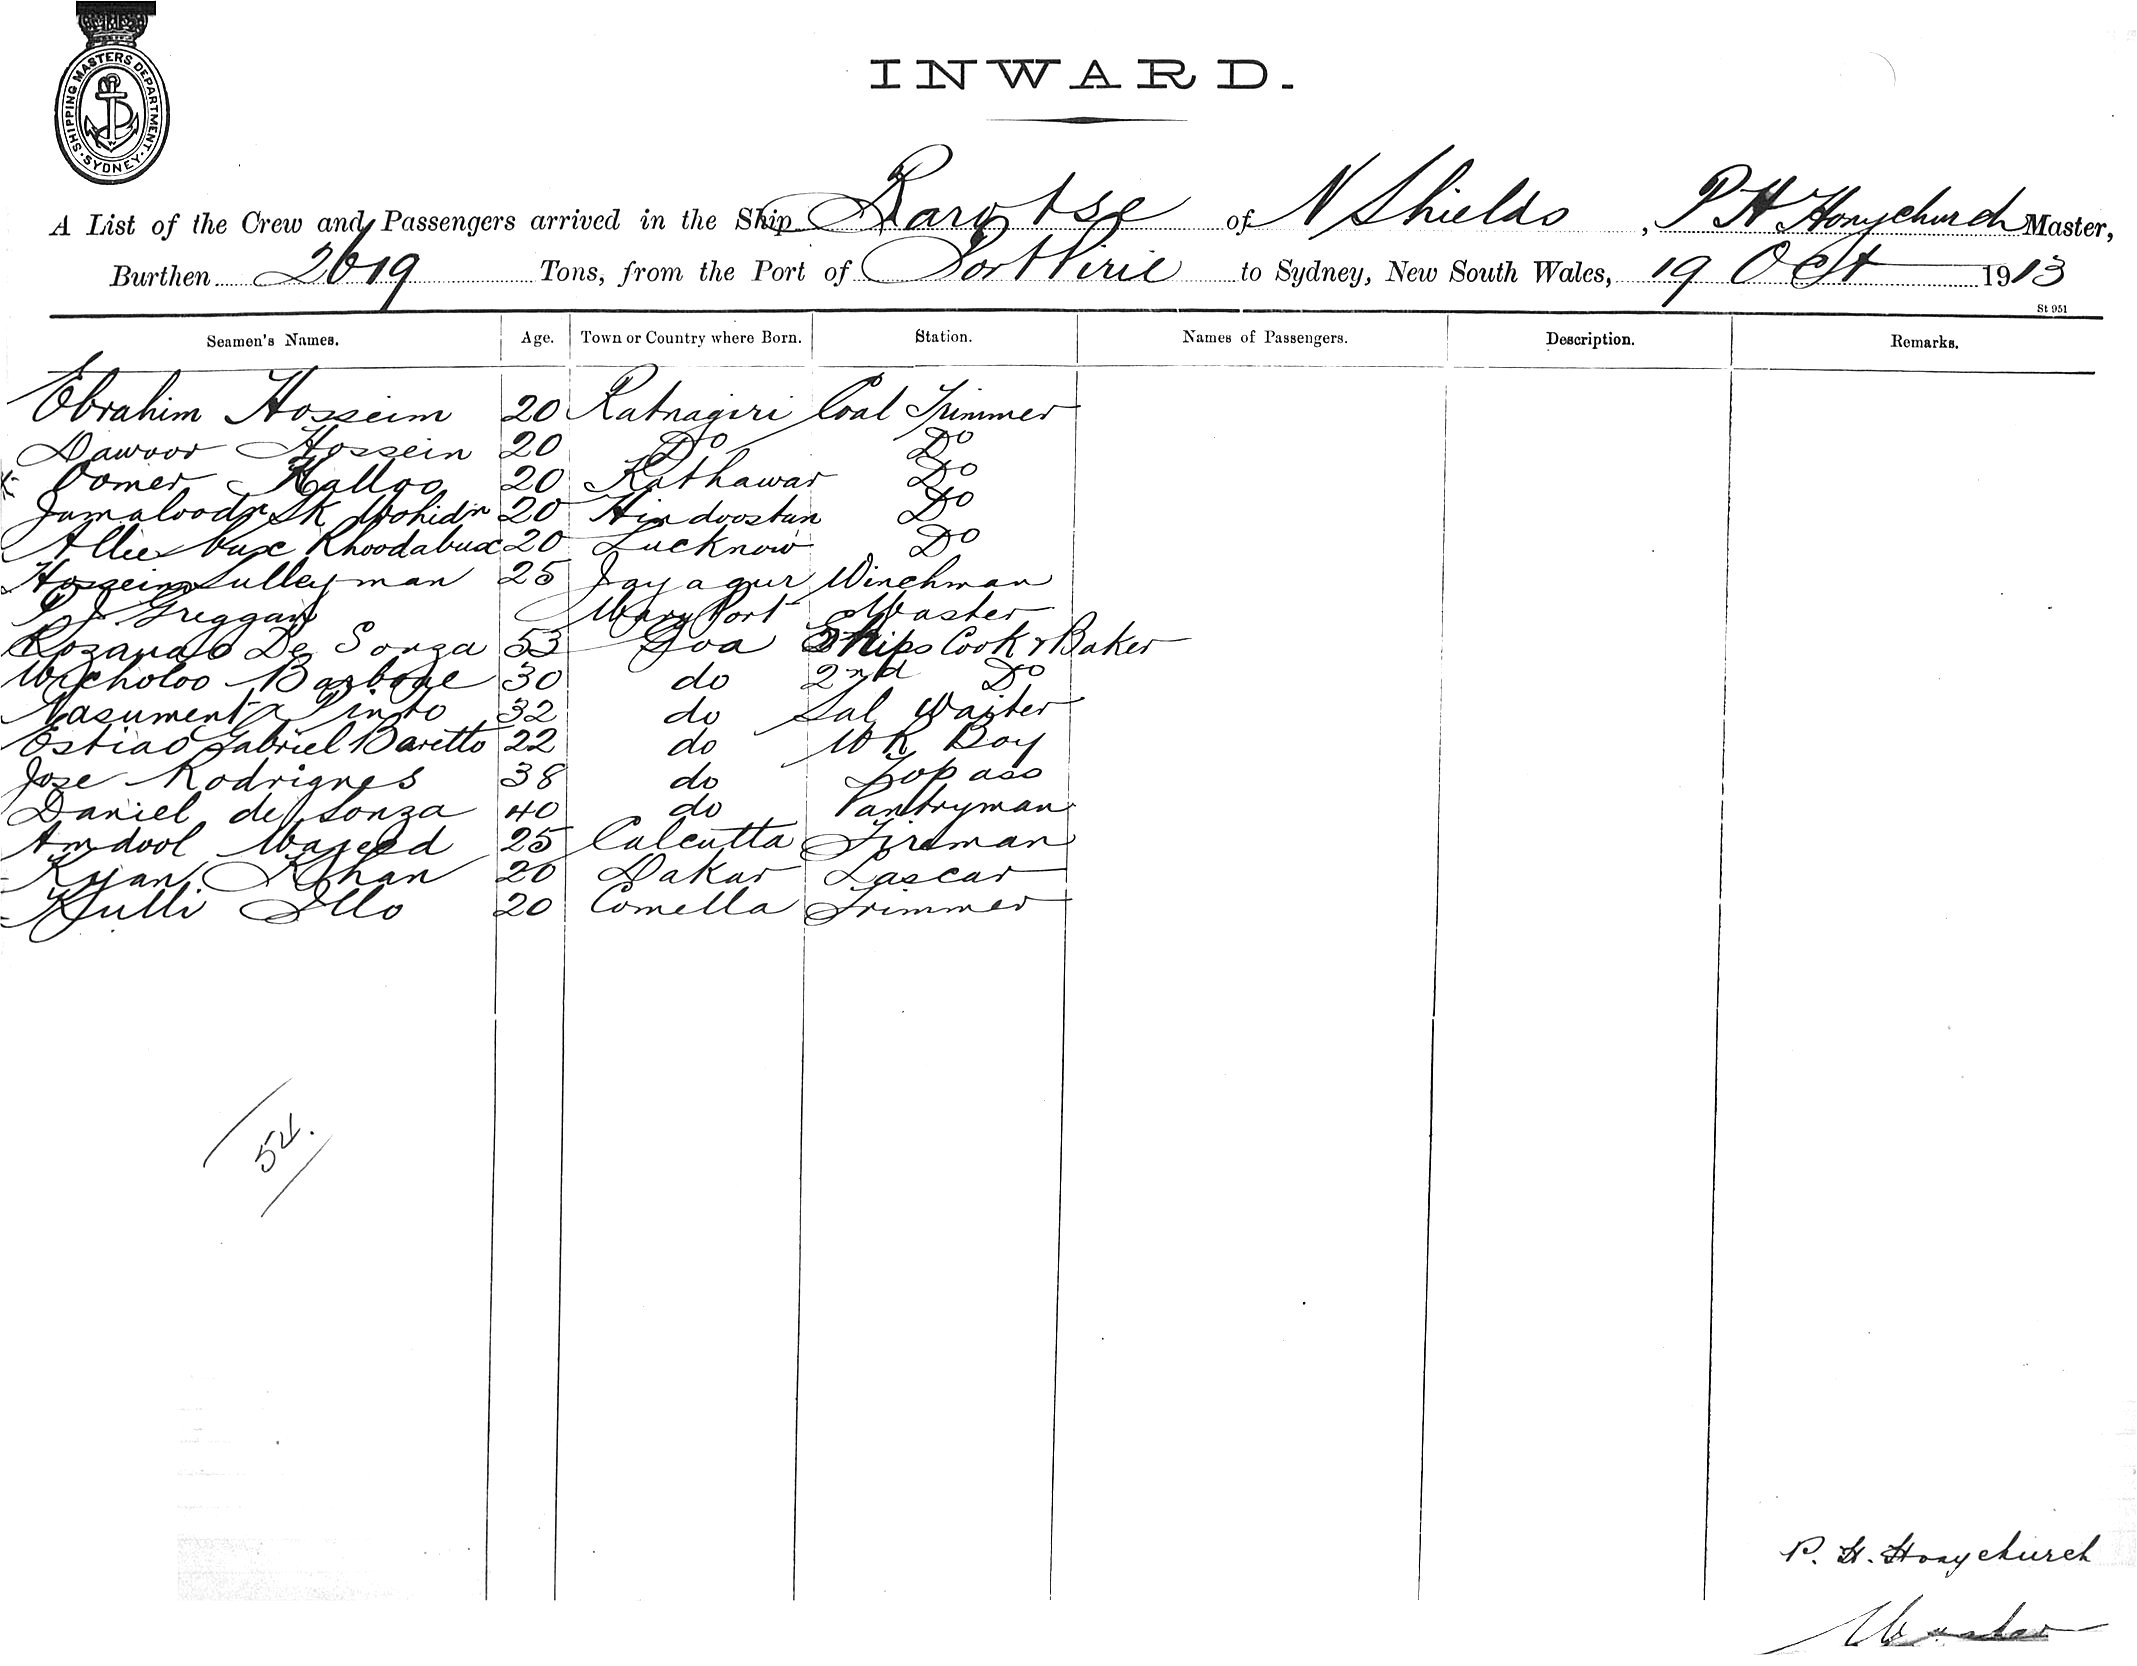 SHIPPING MASTERS DEPARTMENT
SYDNEY
INWARD.
A List of the Crew and Passengers arrived in the Ship Barotse of N Shields, P H Honychurch Master,
Burthen 2619 Tons, from the Port of Port Pirie to Sydney, New South Wales, 19 Oct 1913
St 951
Seamen's Names. Age. Town or Country where Born. Station. Names of Passengers. Description. Remarks.
Ebrahim Hosseim 20 Ratnagiri Coal Trimmer
Dawoor Hossein 20 Do Do
Oomer Kalloo 20 Kathawar Do
Jamaloodn Sk Mohidn 20 Hindoostan Do
Allie bux Khoodabux 20 Lucknow Do
Hossein Sulleyman 25 Jayagur Winchman
P J Greggan Mary Port Master
Rozario De Souza 53 Goa Ships Cook & Baker
Wicholoo Barboae 30 do 2nd Do
Nasumenta Pinto 32 do Sal Waiter
Estiao Gabriel Baretto 22 do M R Boy
Jose Rodrigues 38 do Topass
Daniel de Souza 40 do Pantryman
Amdool Wajeed 25 Calcutta Fireman
Kyan Khan 20 Dakar Lascar
Kulli Illo 20 Comella Trimmer
52.
P. H. Honychurch
Master